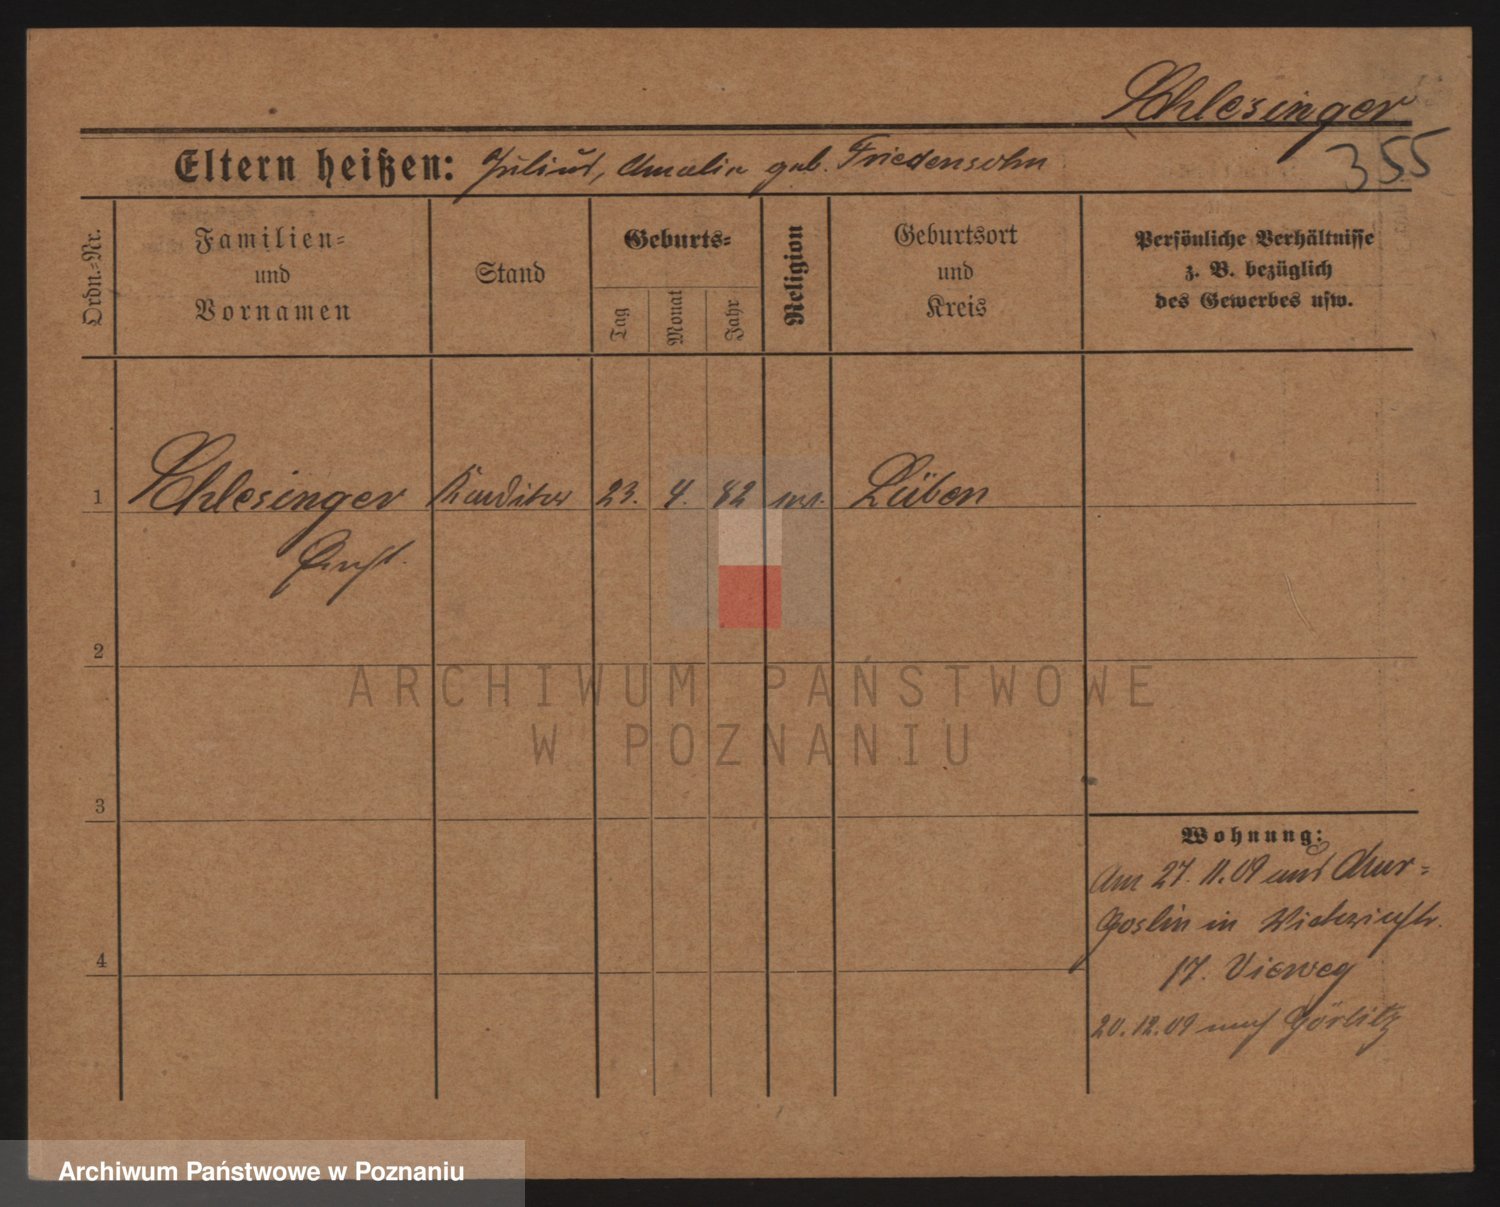 Schlesinger
355
Eltern heißen: Julius, Amalie geb. Friedensohn
Ordn.-Nr.
Familien-
und
Vornamen
Stand
Geburts-
Tag
Monat
Jahr
Religion
Geburtsort
und
Kreis
Persönliche Verhältnisse
z. B. bezüglich
des Gewerbes usw.
1 Schlesinger Konditor 23. 4. 82 Lüben
Ernst.
2
3
4
Wohnung:
Am 27.11.09 aus Mur-
Goslin in
17. Vieweg
20.12.09 nach Görlitz
ARCHIWUM PAŃSTWOWE
W POZNANIU
Archiwum Państwowe w Poznaniu